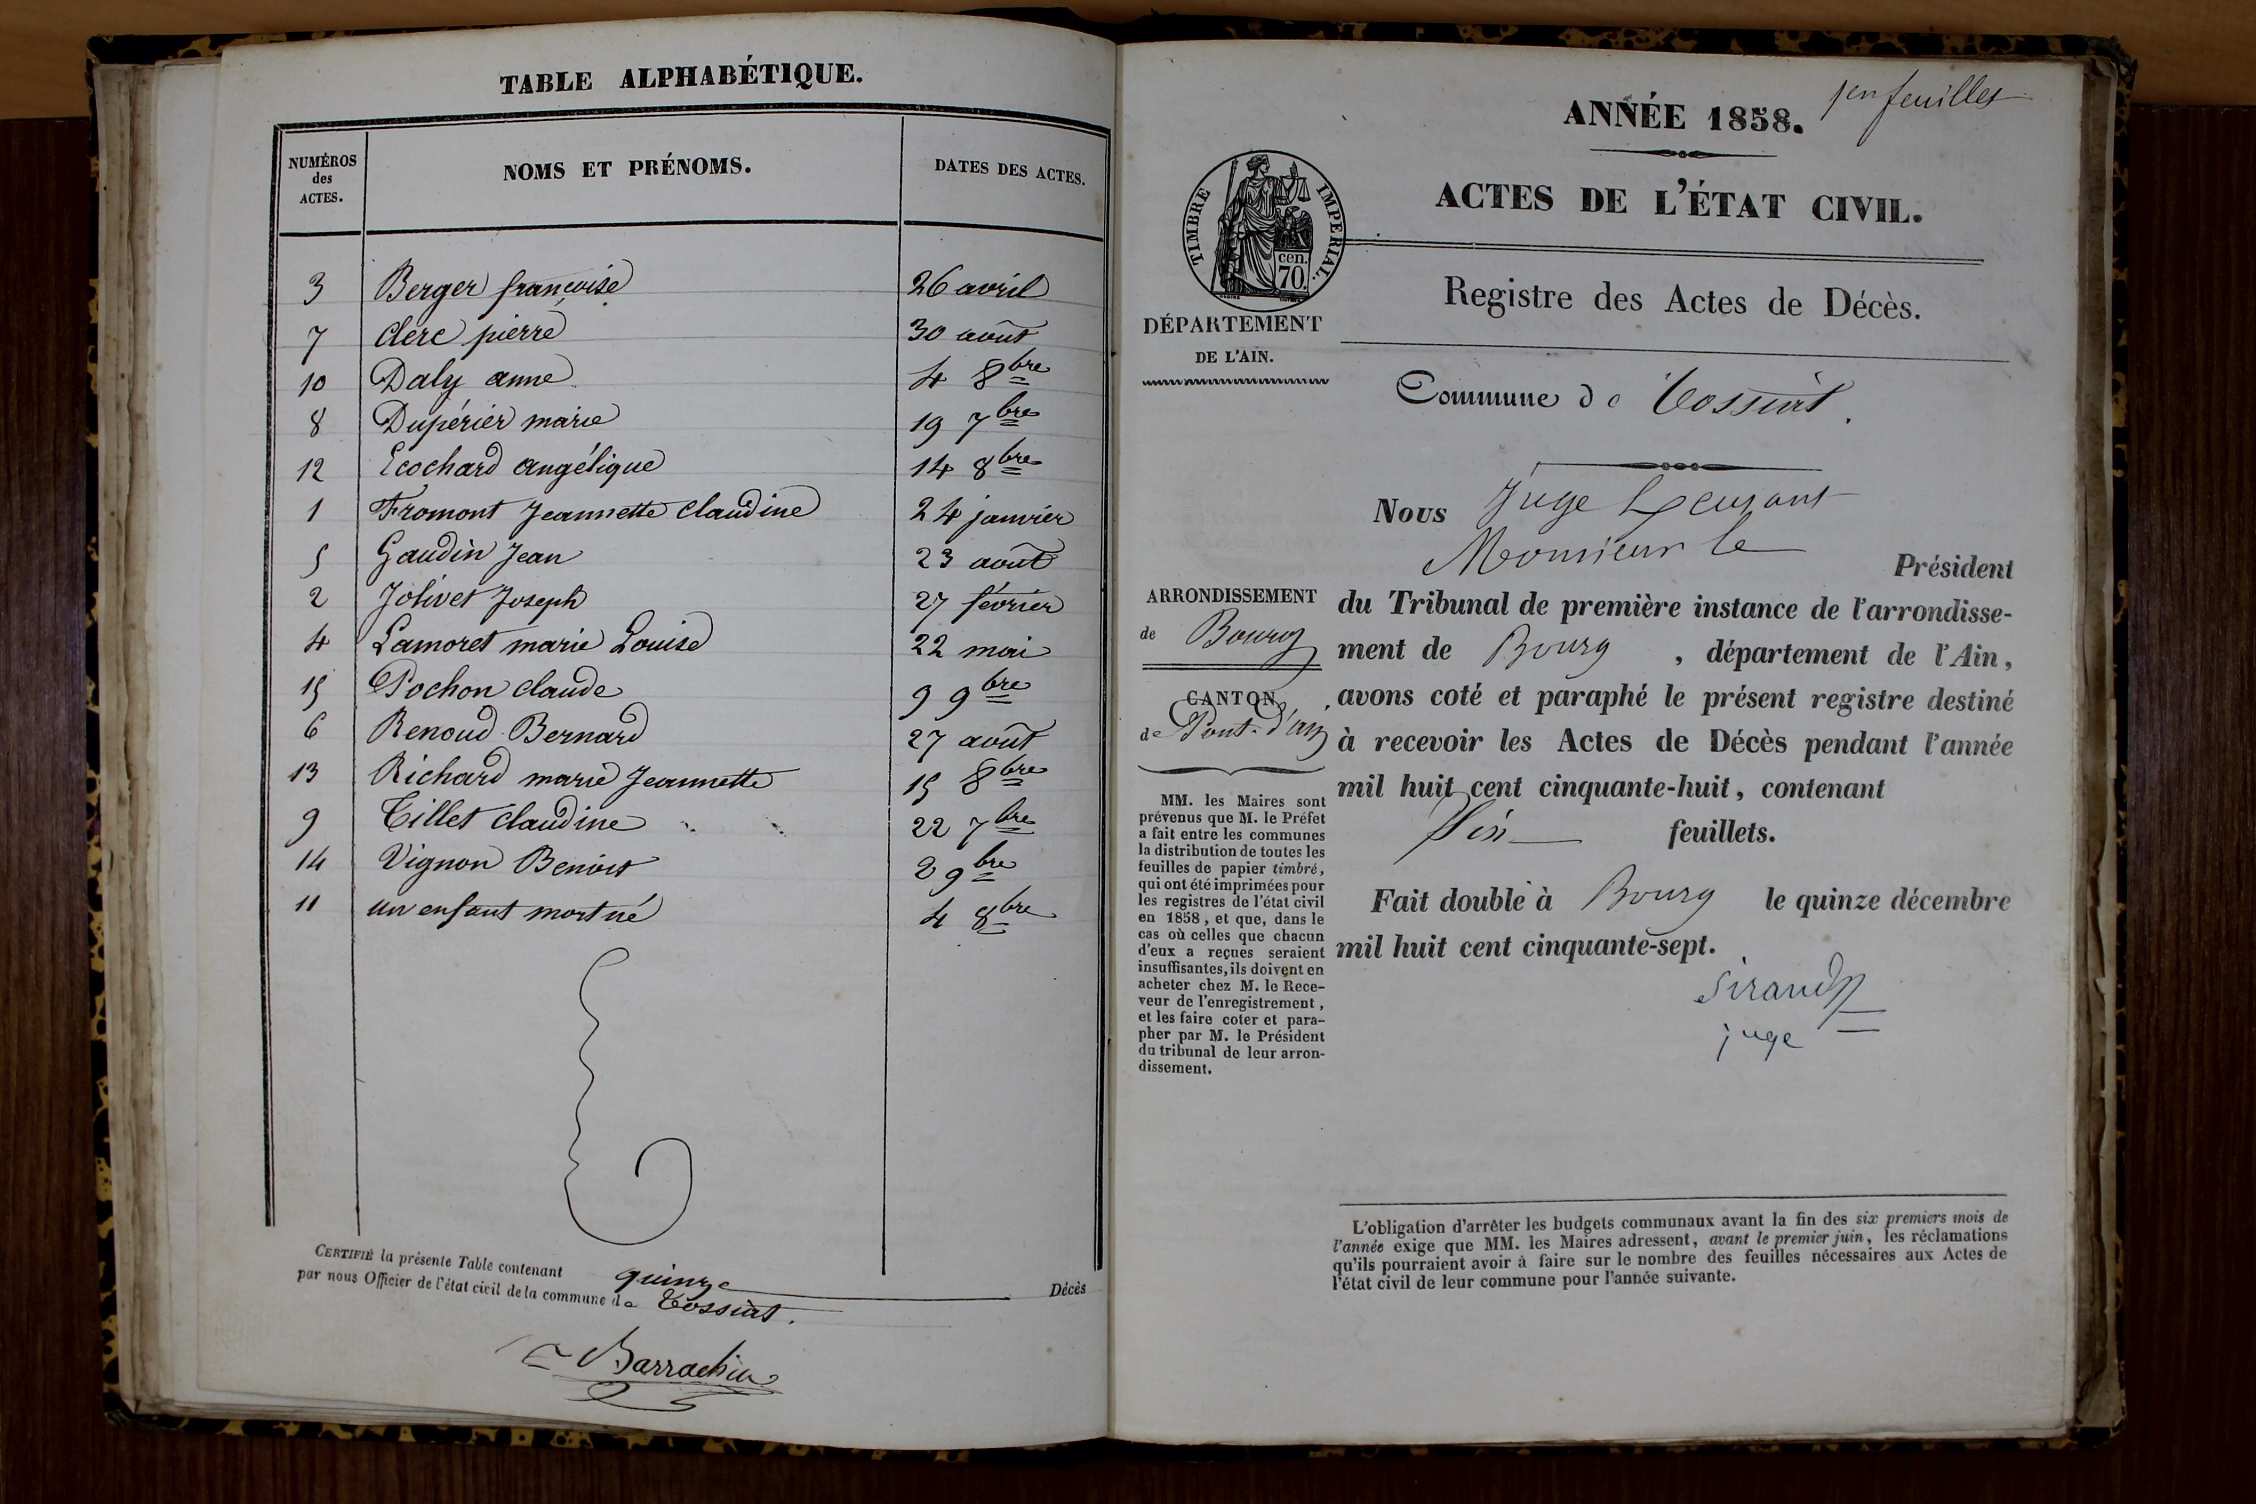 TABLE ALPHABÉTIQUE.
NUMÉROS des ACTES. NOMS ET PRÉNOMS. DATES DES ACTES.
3 Berger françoise 26 avril
7 Clerc pierre 30 août
10 Daly anne 4 8bre
8 Dupérier marie 19 7bre
12 Ecochard angélique 14 8bre
1 Fromont Jeannette Claudine 24 janvier
5 Gaudin Jean 23 août
2 Jolivet Joseph 27 février
4 Lamoret marie Louise 22 mai
15 Pochon claude 9 9bre
6 Renoud Bernard 27 août
13 Richard marie Jeannette 15 8bre
9 Tillet claudine 22 7bre
14 Vignon Benoit 2 9bre
11 un enfant mort né 4 8bre
CERTIFIÉ la présente Table contenant quinze Décès
par nous Officier de l'état civil de la commune de Tossiat.
Barrachin
1er feuillet
ANNÉE 1858.
ACTES DE L'ÉTAT CIVIL.
TIMBRE IMPERIAL.
cen.
70.
Registre des Actes de Décès.
DÉPARTEMENT
DE L'AIN.
Commune de Tossiat.
Nous Juge
Monsieur le Président
du Tribunal de première instance de l'arrondisse-
ment de Bourg, département de l'Ain,
avons coté et paraphé le présent registre destiné
à recevoir les Actes de Décès pendant l'année
mil huit cent cinquante-huit, contenant
feuillets.
Fait double à Bourg le quinze décembre
mil huit cent cinquante-sept.
Sirand
juge
ARRONDISSEMENT
de Bourg
CANTON
de Pont-d'ain
MM. les Maires sont
prévenus que M. le Préfet
a fait entre les communes
la distribution de toutes les
feuilles de papier timbré,
qui ont été imprimées pour
les registres de l'état civil
en 1858, et que, dans le
cas où celles que chacun
d'eux a reçues seraient
insuffisantes, ils doivent en
acheter chez M. le Rece-
veur de l'enregistrement,
et les faire coter et para-
pher par M. le Président
du tribunal de leur arron-
dissement.
L'obligation d'arrêter les budgets communaux avant la fin des six premiers mois de
l'année exige que MM. les Maires adressent, avant le premier juin, les réclamations
qu'ils pourraient avoir à faire sur le nombre des feuilles nécessaires aux Actes de
l'état civil de leur commune pour l'année suivante.